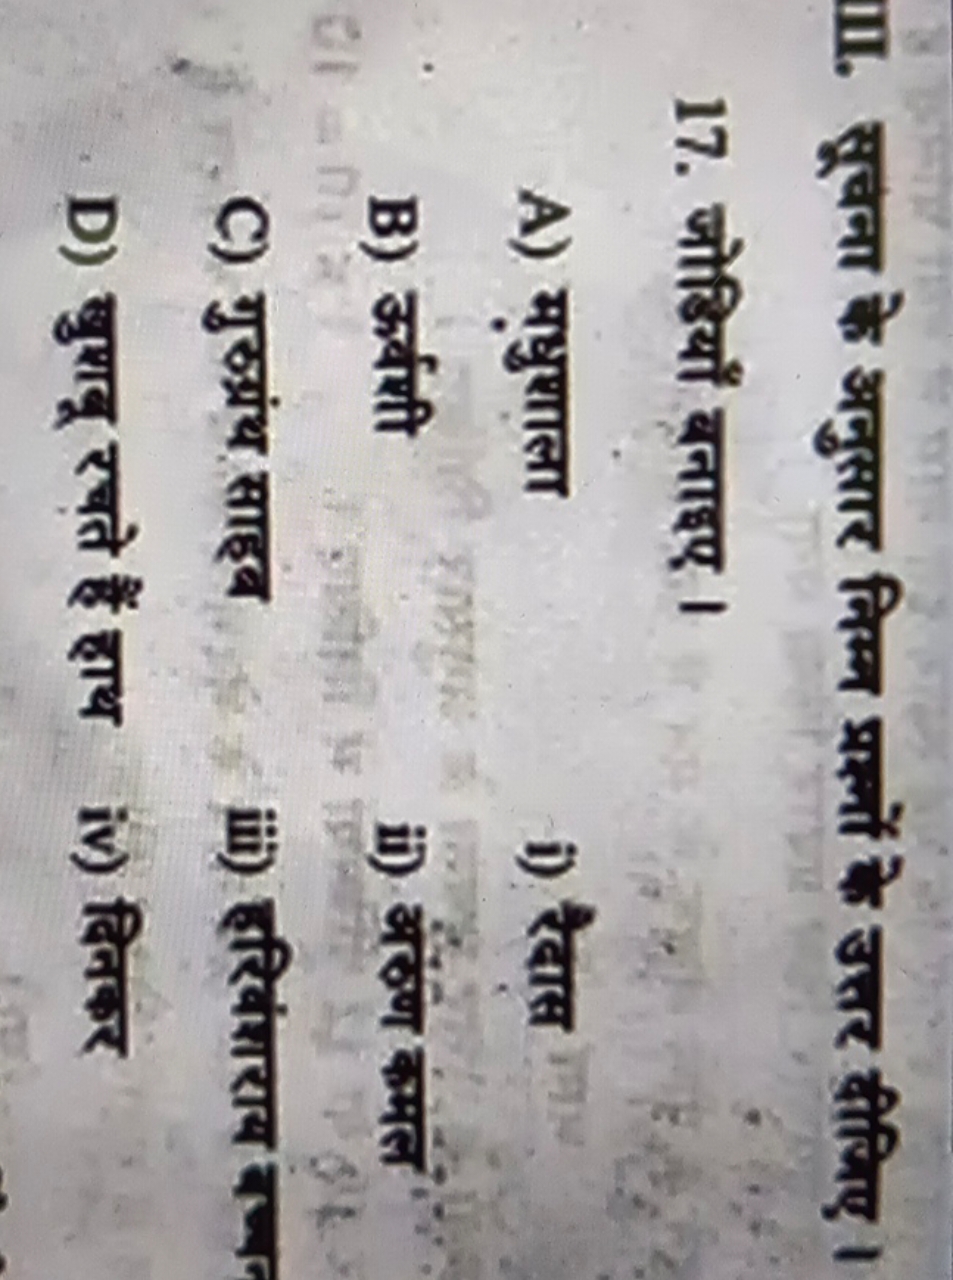 III. सूचना के अनुसार निम्न प्रश्नों के उत्तर दीजिए ।
17. जोड़ियाँ बनाइए ।
A) मधुशाला i) रैदास
B) ऊर्वशी ii) अरुण कमल
C) गुरुग्रंथ साहब iii) हरिवंशराय बच्चन
D) खुशबू रचते हैं हाथ iv) दिनकर